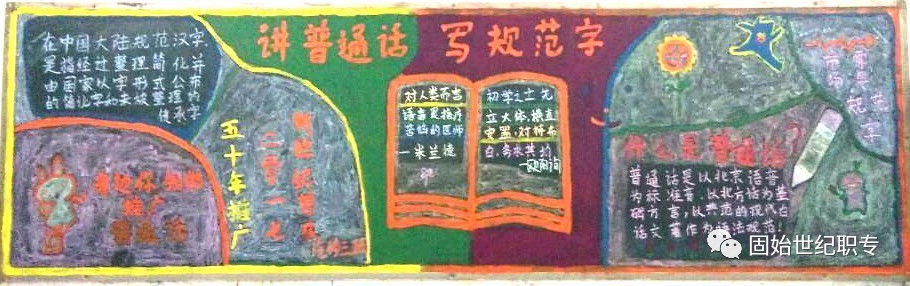 讲普通话 写规范字
在中国大陆规范汉字
是指经过整理简化并
由国家以字形式公布
的简化字和未被整理
的传承字
推广
普通话
五十年推广
二零一七
对人类而言
语言是治疗
苦恼的医师
一米兰德
初学之士先
立大体,横直
安置,对待布
白,务求其均
一欧阳询
什么是普通话
普通话是以北京语音
为标准音,以北方话为基
础方言,以典范的现代白
话文著作为语法规范!
规范字
固始世纪职专